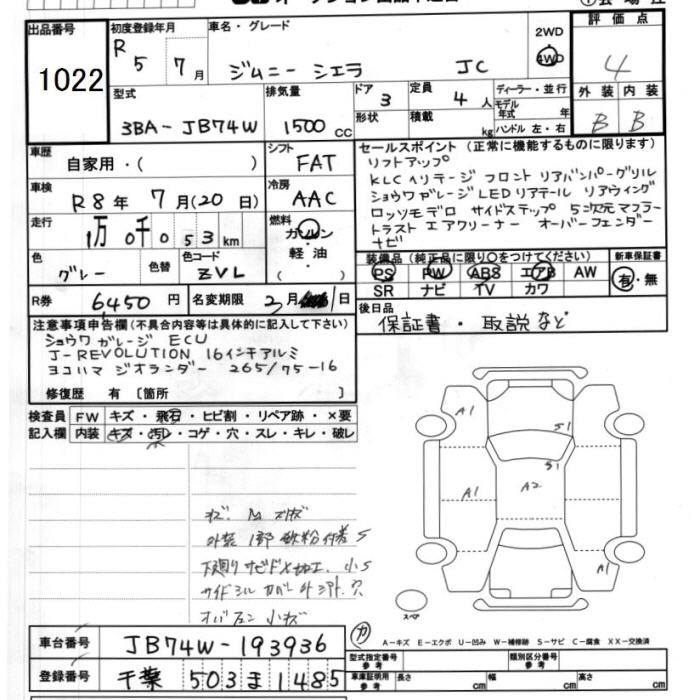 出品番号 初度登録年月 車名・グレード 2WD 評価点
1022 R5 7月 ジムニー シエラ JC 4WD 4
外装 内装
B B
型式 排気量 ドア 定員 ディーラー・並行
3BA-JB74W 1500cc 3 4人 モデル年式 年
形状 積載 kg ハンドル 左・右
車歴 自家用・( ) シフト FAT セールスポイント (正常に機能するものに限ります)
リフトアップ
KLC ヘリテージ フロント リアバンパーグリル
ショウワガレージLEDリアテール リアウィング
ロッソモデロ サイドステップ 5次元マフラー
トラスト エアクリーナー オーバーフェンダー
ナビ
車検 R8年 7月(20日) 冷房 AAC
走行 1万0千053km 燃料 ガソリン・軽油・( )
色 グレー 色替 色コード ZVL
装備品 (純正品に限り○をつけてください) 新車保証書
PS PW ABS エアB AW 有・無
SR ナビ TV カワ
R券 6,450円 名変期限 3月 1日
後日品
保証書・取説など
注意事項申告欄(不具合内容等は具体的に記入して下さい)
ショウワガレージ ECU
J-REVOLUTION 16インチアルミ
ヨコハマ ジオランダー 265/75-16
修復歴 有 [箇所 ]
検査員 FW キズ・飛石・ヒビ割・リペア跡・×要
記入欄 内装 キズ・汚れ・コゲ・穴・スレ・キレ・破レ
A1
S1
S1
A1 A2 A1
A1
外装 1部 鉄粉付着 S
下廻り サビ
小S
スペア
A-キズ E-エクボ U-凹み W-補修跡 S-サビ C-腐食 XX-交換済
車台番号 JB74W-193936
登録番号 千葉 503 ま 1485
型式指定番号 参考 類別区分番号 参考
車庫証明用 参考 長さ cm 幅 cm 高さ cm